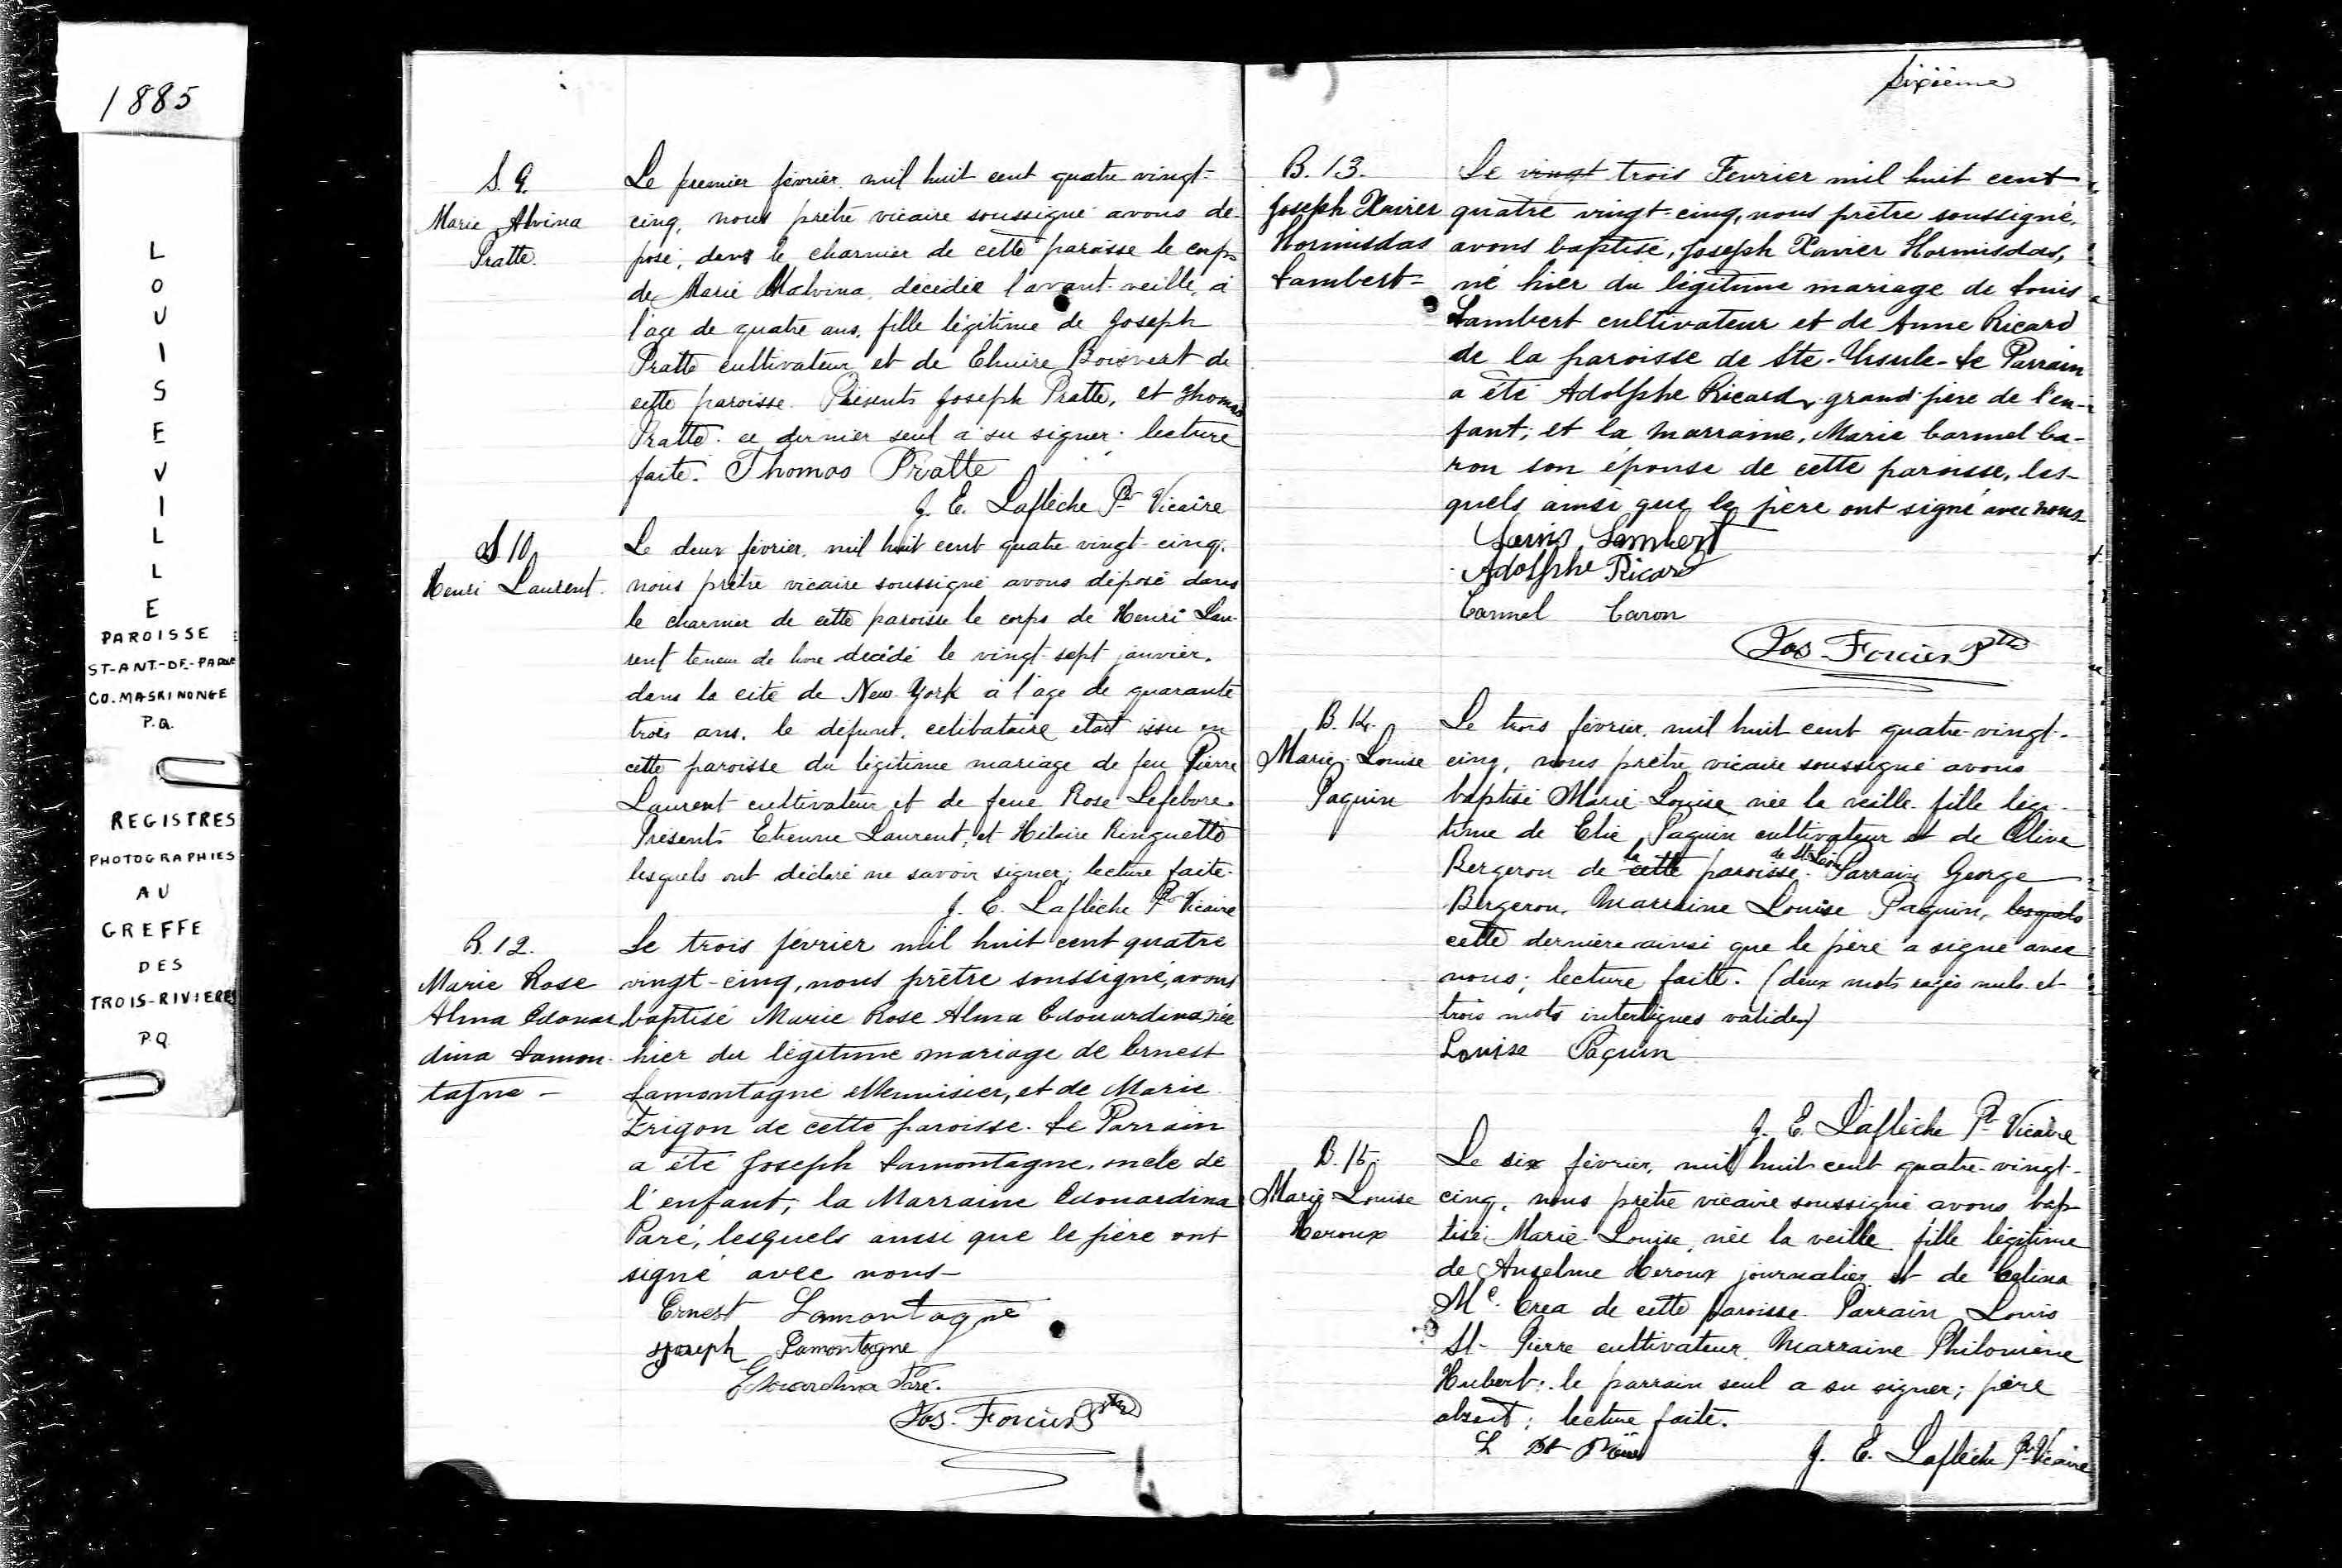 1885
LOUISEVILLE
PAROISSE
ST-ANT-DE-PADUE
CO. MASKINONGE
P.Q.
REGISTRES
PHOTOGRAPHIES
AU
GREFFE
DES
TROIS-RIVIERES
P.Q.
S. 9.
Marie Alvina
Pratte.
Le premier février mil huit cent quatre vingt-
cinq, nous prêtre vicaire soussigné avons dé-
posé, dans le charnier de cette paroisse le corps
de Marie Malvina, décédée l'avant-veille, à
l'age de quatre ans, fille légitime de Joseph
Pratte cultivateur et de Elmire Boisvert de
cette paroisse. Présents Joseph Pratte, et Thomas
Pratte. ce dernier seul a su signer. lecture
faite. Thomas Pratte
J. E. Laflèche Ptr Vicaire
S 10
Henri Laurent.
Le deux février, mil huit cent quatre vingt-cinq.
nous prêtre vicaire soussigné avons déposé dans
le charnier de cette paroisse le corps de Henri Lau-
rent teneur de livre décédé le vingt-sept janvier.
dans la cité de New-York à l'age de quarante
trois ans. le défunt, celibataire etait issu en
cette paroisse du légitime mariage de feu Pierre
Laurent cultivateur et de feue Rose Lefebvre.
Présents Etienne Laurent, et Hilaire Ringuette
lesquels ont déclaré ne savoir signer; lecture faite.
J. E. Laflèche Ptr Vicaire
B. 12.
Marie Rose
Alma Edouar
dina Lamon-
tagne -
Le trois février mil huit cent quatre
vingt-cinq, nous prêtre soussigné, avons
baptisé Marie Rose Alma Edouardina, née
hier du légitime mariage de Ernest
Lamontagne Menuisier, et de Marie
Frigon de cette paroisse. Le Parrain
a été Joseph Lamontagne, oncle de
l'enfant; la Marraine Edouardina
Paré, lesquels ainsi que le père ont
signé avec nous-
Ernest Lamontagne
Joseph Lamontagne
Edouardina Paré.
Jos. Forcier Ptre
Sixième
B. 13.
Joseph Xavier
Hormisdas
Lambert-
Le vingt trois Fevrier mil huit cent
quatre vingt-cinq, nous prêtre soussigné,
avons baptisé, Joseph Xavier Hormisdas,
né hier du légitime mariage de Louis
Lambert cultivateur et de Anne Ricard
de la paroisse de Ste-Ursule- Le Parrain
a été Adolphe Ricard, grand-père de l'en-
fant; et la marraine, Marie Carmel Ca-
ron son épouse de cette paroisse, les-
quels ainsi que le père ont signé avec nous-
Louis Lambert
Adolphe Ricard
Carmel Caron
Jos. Forcier Ptre
B. 14.
Marie-Louise
Paquin
Le trois février, mil huit cent quatre-vingt-
cinq, nous prêtre vicaire soussigné avons
baptisé Marie-Louise née la veille fille légi-
time de Elie Paquin cultivateur et de Olive
la de St-Léon
Bergeron de cette paroisse. Parrain George
Bergeron, Marraine Louise Paquin, lesquels
cette dernière ainsi que le père a signé avec
nous; lecture faite. (deux mots rayés nuls et
trois mots interlignes valides)
Louise Paquin
J. E. Laflèche Ptr Vicaire
B. 15.
Marie-Louise
Heroux
Le six février, mil huit cent quatre-vingt-
cinq, nous prêtre vicaire soussigné avons bap-
tisé Marie-Louise, née la veille fille légitime
de Anselme Heroux journalier et de Celina
Mc Crea de cette paroisse. Parrain Louis
St-Pierre cultivateur, Marraine Philomène
Hubert; le parrain seul a su signer; père
absent; lecture faite.
L St Pierre
J. E. Laflèche Ptr Vicaire